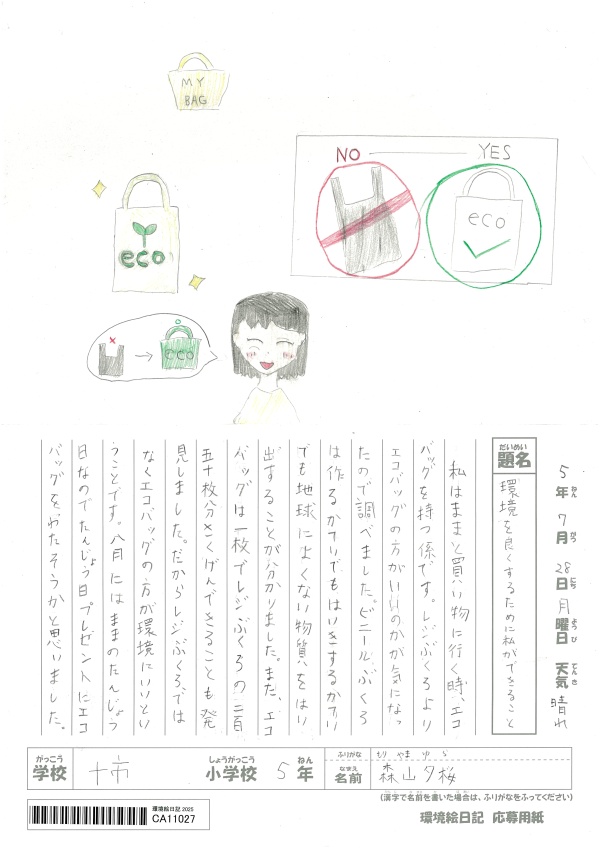 MY
BAG
NO
YES
eco
eco
eco
5年 7月 28日 月曜日 天気 晴れ
ねん がつ にち ようび てんき
だいめい
題名
環境を良くするために私ができること
私はままと買い物に行く時、エコ
バッグを持つ係です。レジぶくろより
エコバッグの方がいいのかが気になっ
たので調べました。ビニールぶくろ
は作るかていでもはいきするかてい
でも地球によくない物質をはい
出することが分かりました。また、エコ
バッグは一枚でレジぶくろの二百
五十枚分さくげんできることも発
見しました。だからレジぶくろでは
なくエコバッグの方が環境にいいとい
うことです。八月にはままのたんじょう
日なのでたんじょう日プレゼントにエコ
バッグをわたそうかと思いました。
がっこう
学校
十市
しょうがっこう
小学校
5
ねん
年
ふりがな
もり やま ゆ ら
なまえ
名前
森山夕桜
(漢字で名前を書いた場合は、ふりがなをふってください)
環境絵日記 2025
CA11027
環境絵日記 応募用紙